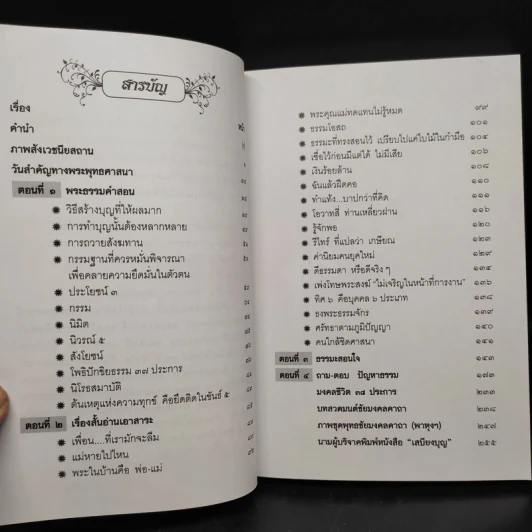 สารบัญ
เรื่อง
หน้า
คำนำ
ภาพสังเวชนียสถาน
วันสำคัญทางพระพุทธศาสนา
ตอนที่ ๑ พระธรรมคำสอน
✹ วิธีสร้างบุญที่ให้ผลมาก
✹ การทำบุญนั้นต้องหลากหลาย
✹ การถวายสังฆทาน
✹ กรรมฐานที่ควรหมั่นพิจารณา
เพื่อคลายความยึดมั่นในตัวตน
✹ ประโยชน์ ๓
✹ กรรม
✹ นิมิต
✹ นิวรณ์ ๕
✹ สังโยชน์
✹ โพธิปักขิยธรรม ๓๗ ประการ
✹ นิโรธสมาบัติ
✹ ต้นเหตุแห่งความทุกข์ คือยึดติดในขันธ์ ๕
ตอนที่ ๒ เรื่องสั้นอ่านเอาสาระ
✹ เพื่อน....ที่เรามักจะลืม
✹ แม่หายไปไหน
✹ พระในบ้านคือ พ่อ-แม่
✹ พระคุณแม่ทดแทนไม่รู้หมด ๙๙
✹ ธรรมโอสถ ๑๐๑
✹ ธรรมะที่ทรงสอนไว้ เปรียบไปแค่ใบไม้ในกำมือ ๑๐๔
✹ เชื่อไว้ก่อนมีแต่ได้ ไม่มีเสีย ๑๐๖
✹ เงินร้อยล้าน ๑๐๘
✹ ฉันแล้วฝืดคอ ๑๑๐
✹ ทำแท้ง...บาปกว่าที่คิด ๑๑๑
✹ โอวาทสี่ ท่านเหลี่ยวฝาน ๑๑๖
✹ รู้จักพอ ๑๒๐
✹ รีไทร์ ที่แปลว่า เกษียณ ๑๒๑
✹ ค่านิยมคนยุคใหม่ ๑๒๙
✹ ดีธรรมดา หรือดีจริง ๆ ๑๓๔
✹ เพ่งโทษพระสงฆ์ "ไม่เจริญในหน้าที่การงาน" ๑๓๖
✹ ทิศ ๖ คือบุคคล ๖ ประเภท ๑๓๘
✹ ธงพระธรรมจักร ๑๓๙
✹ ศรัทธาตามภูมิปัญญา ๑๔๐
✹ คนใกล้ชิดศาสนา ๑๔๑
ตอนที่ ๓ ธรรมะสอนใจ ๑๔๓
ตอนที่ ๔ ถาม-ตอบ ปัญหาธรรม ๑๗๓
มงคลชีวิต ๓๘ ประการ ๒๓๓
บทสวดมนต์ชัยมงคลคาถา ๒๓๘
ภาพชุดพุทธชัยมงคลคาถา (พาหุงฯ) ๒๔๗
นามผู้บริจาคพิมพ์หนังสือ "เสบียงบุญ" ๒๕๕